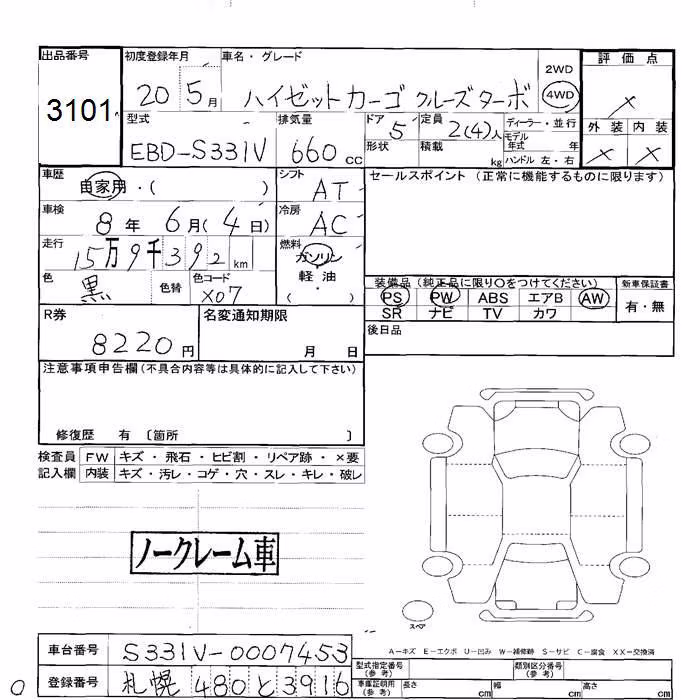 出品番号
3101
初度登録年月
20 5月
車名・グレード
ハイゼットカーゴ クルーズターボ
2WD
4WD
評価点
×
外装 内装
× ×
型式
EBD-S331V
排気量
660cc
ドア
5
形状
定員
2(4)人
積載
kg
ディーラー・並行
モデル
年式 年
ハンドル 左・右
車歴
自家用・( )
シフト
AT
セールスポイント (正常に機能するものに限ります)
車検
8年 6月(4日)
冷房
AC
走行
15万9千392km
燃料
ガソリン
軽・油
・
( )
色
黒
色替
色コード
X07
装備品 (純正品に限り〇をつけてください)
PS PW ABS エアB AW
SR ナビ TV カワ
新車保証書
有・無
R券
8220円
名変通知期限
月 日
後日品
注意事項申告欄(不具合内容等は具体的に記入して下さい)
修復歴 有 〔箇所 〕
検査員
記入欄
FW キズ・飛石・ヒビ割・リペア跡・×要
内装 キズ・汚レ・コゲ・穴・スレ・キレ・破レ
ノークレーム車
スペア
A－キズ E－エクボ U－凹み W－補修跡 S－サビ C－腐食 XX－交換済
車台番号
S331V-0007453
登録番号
札幌 480 と 3916
型式指定番号
(参考)
類別区分番号
(参考)
車庫証明用
(参考)
長さ cm
幅 cm
高さ cm
0